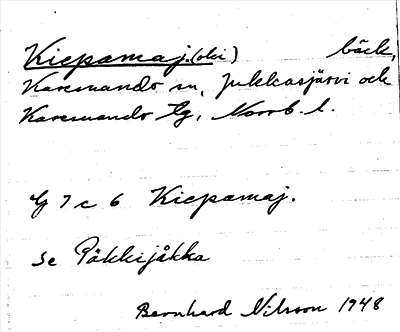 Kiepamaj.(oki) bäck,
Karesuando sn, Jukkasjärvi och
Karesuando tg, Norrb. l.
G 7 c 6 Kiepamaj.
Se Påkkijåkka
Bernhard Nilsson 1948